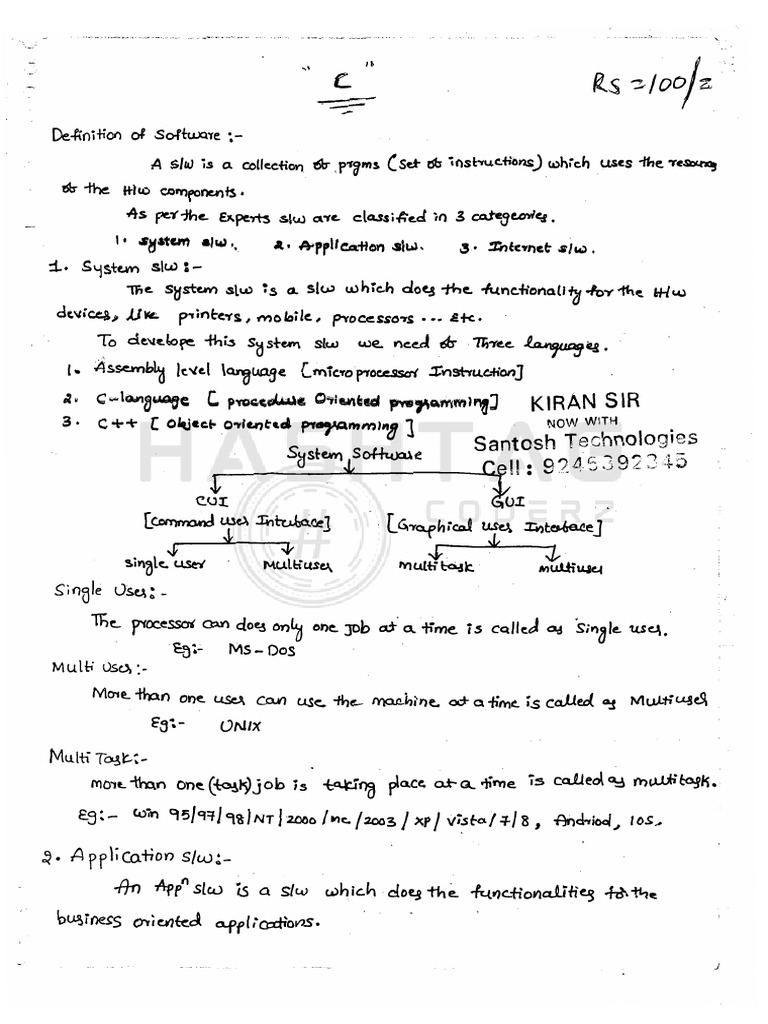 " C "
RS = 100/=
Definition of Software :-
A S/W is a collection of prgms (set of instructions) which uses the resources
of the H/W components.
As per the Experts s/w are classified in 3 categeories.
1. System s/w. 2. Application s/w. 3. Internet s/w.
1. System s/w :-
The System s/w is a s/w which does the functionality for the H/W
devices, like printers, mobile, processors ... Etc.
To develope this System s/w we need of Three languages.
1. Assembly level language [microprocessor Instruction]
2. C-language [ procedure Oriented programming]
3. C++ [ Object oriented programming ]
KIRAN SIR
NOW WITH
Santosh Technologies
Cell : 9246392345
HASHTAG
CODERZ
#
System Software
CUI GUI
[Command user Interface] [Graphical user Interface]
single user Multiuser multitask multiuser
Single User :-
The processor can does only one Job at a time is called as Single user.
Eg:- MS-DOS
Multi User :-
More than one user can use the machine at a time is called as Multiuser
Eg:- UNIX
Multi Task :-
more than one (task) job is taking place at a time is called as multitask.
Eg:- Win 95/97/98/NT/2000/me/2003/xp/vista/7/8, Andriod, IOS.
2. Application s/w :-
An Appn s/w is a s/w which does the functionalities to the
business oriented applications.